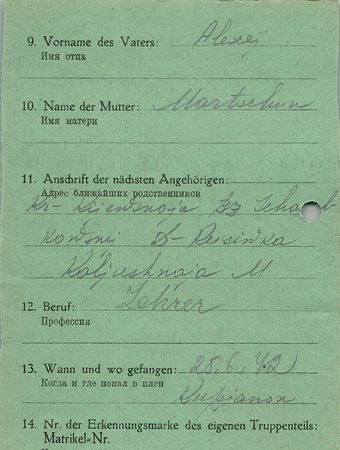 9. Vorname des Vaters: Alexej
Имя отца
10. Name der Mutter: Martschun
Имя матери
11. Anschrift der nächsten Angehörigen:
Адрес ближайших родственников
Kr- Kijewsnaja Bz
D- Rusiwka
Kaljushnaja M
12. Beruf: Lehrer
Профессия
13. Wann und wo gefangen: 28.6.42
Когда и где попал в плен
Kupjansk
14. Nr. der Erkennungsmarke des eigenen Truppenteils:
Matrikel-Nr.